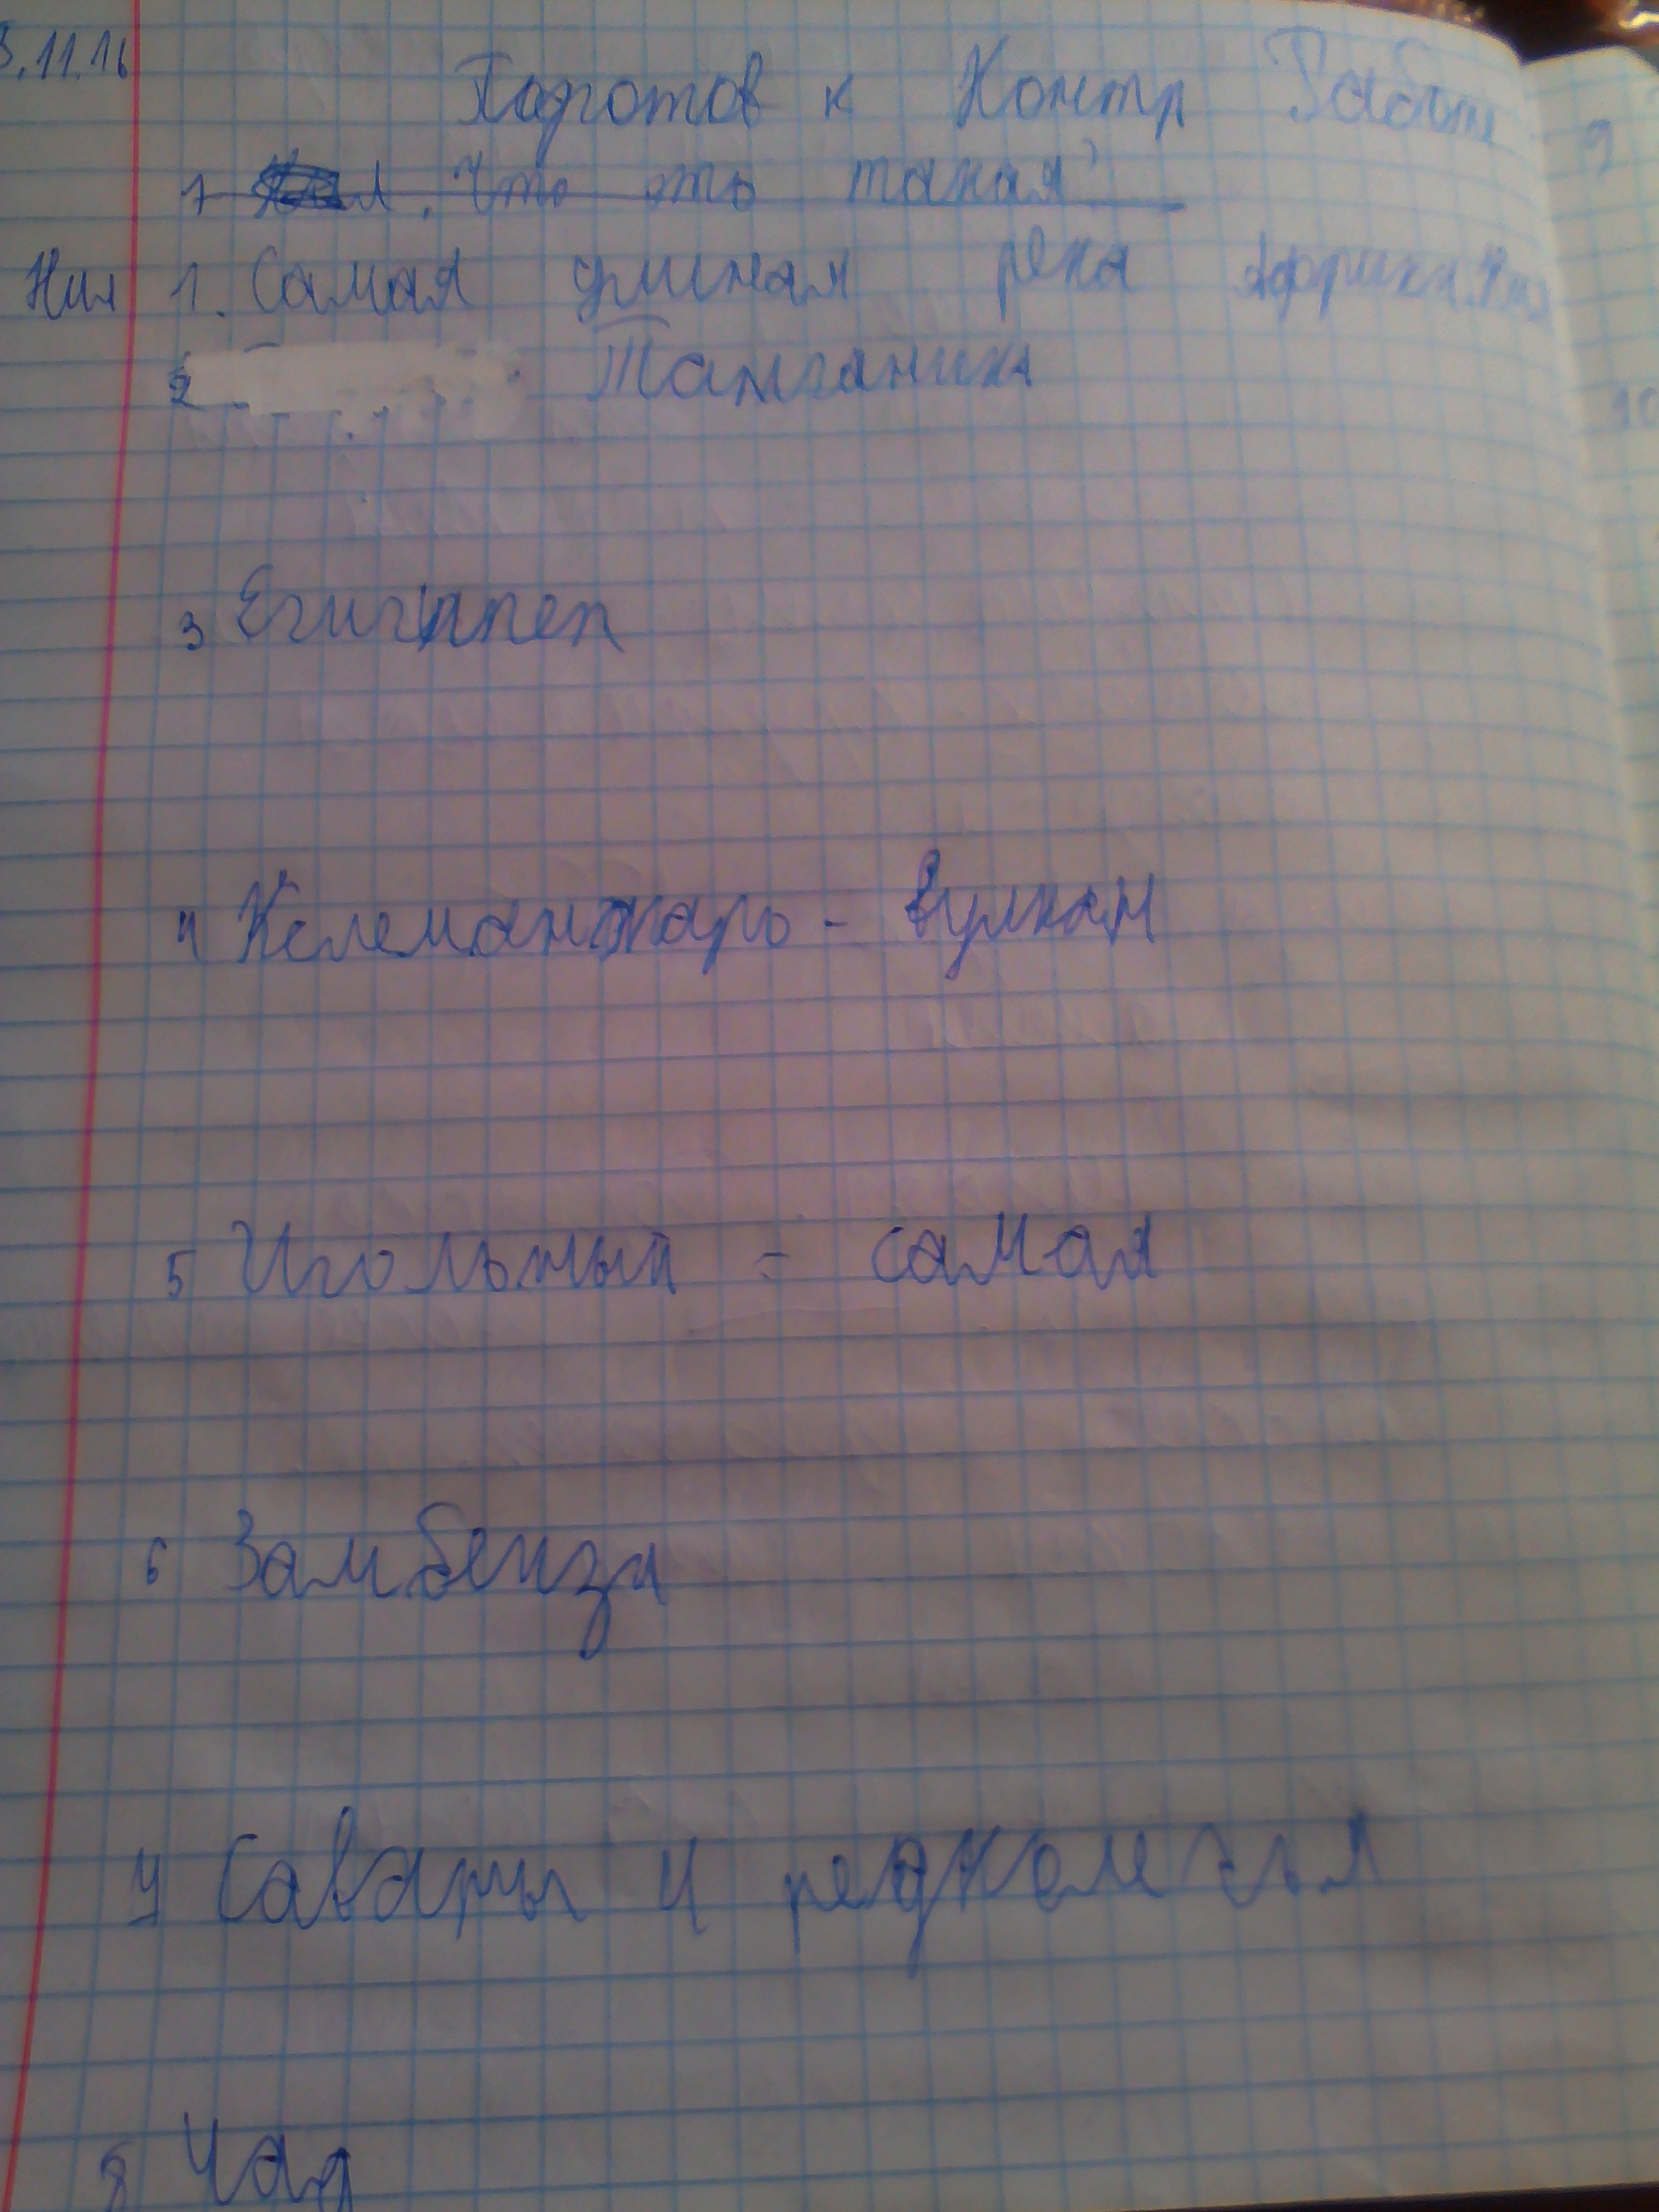 .11.16
Подготов к Контр Работе 9
1 Что это такая?
Нил 1. Самая длиная река Африки Нил
2 Танганика 10
3 Египет
4 Келеманжаро - вулкан
5 Игольный - самая
6 Замбези
7 Саваны и редколесья
8 Чад